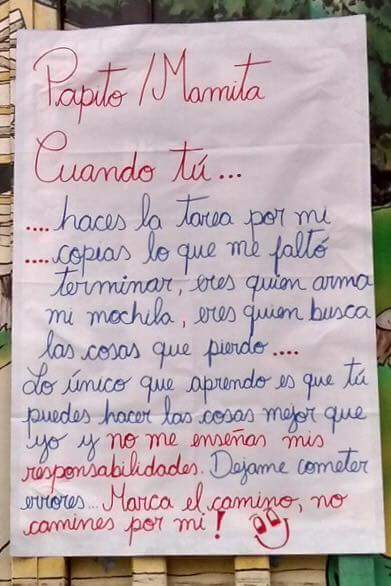 Papito / Mamita
Cuando tú...
.... haces la tarea por mi
.... copias lo que me faltó
terminar, eres quien arma
mi mochila, eres quien busca
las cosas que pierdo....
Lo único que aprendo es que tú
puedes hacer las cosas mejor que
yo y no me enseñas mis
responsabilidades. Dejame cometer
errores... Marca el camino, no
camines por mi!